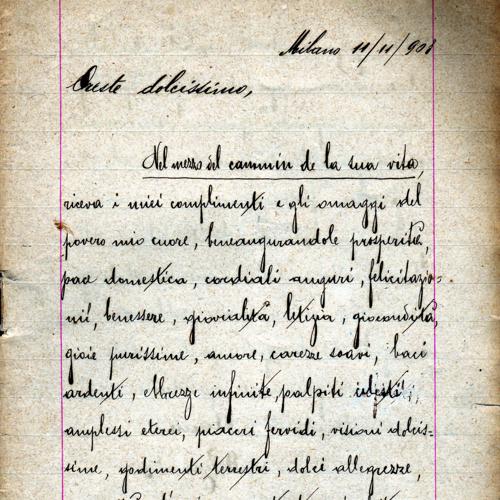 Milano 11/11/903
Oreste dolcissimo,
Nel mezzo del cammin de la sua vita,
riceva i miei complimenti e gli omaggi del
povero mio cuore, beneaugurandole prosperità,
pace domestica, cordiali auguri, felicitazio-
nii, benessere, giovialità, letizia, giocondità,
gioie purissime, amore, carezze soavi, baci
ardenti, ebbrezze infinite, palpiti celesti,
amplessi eterei, piaceri fervidi, visioni dolcis=
sime, godimenti terrestri, dolci allegrezze,